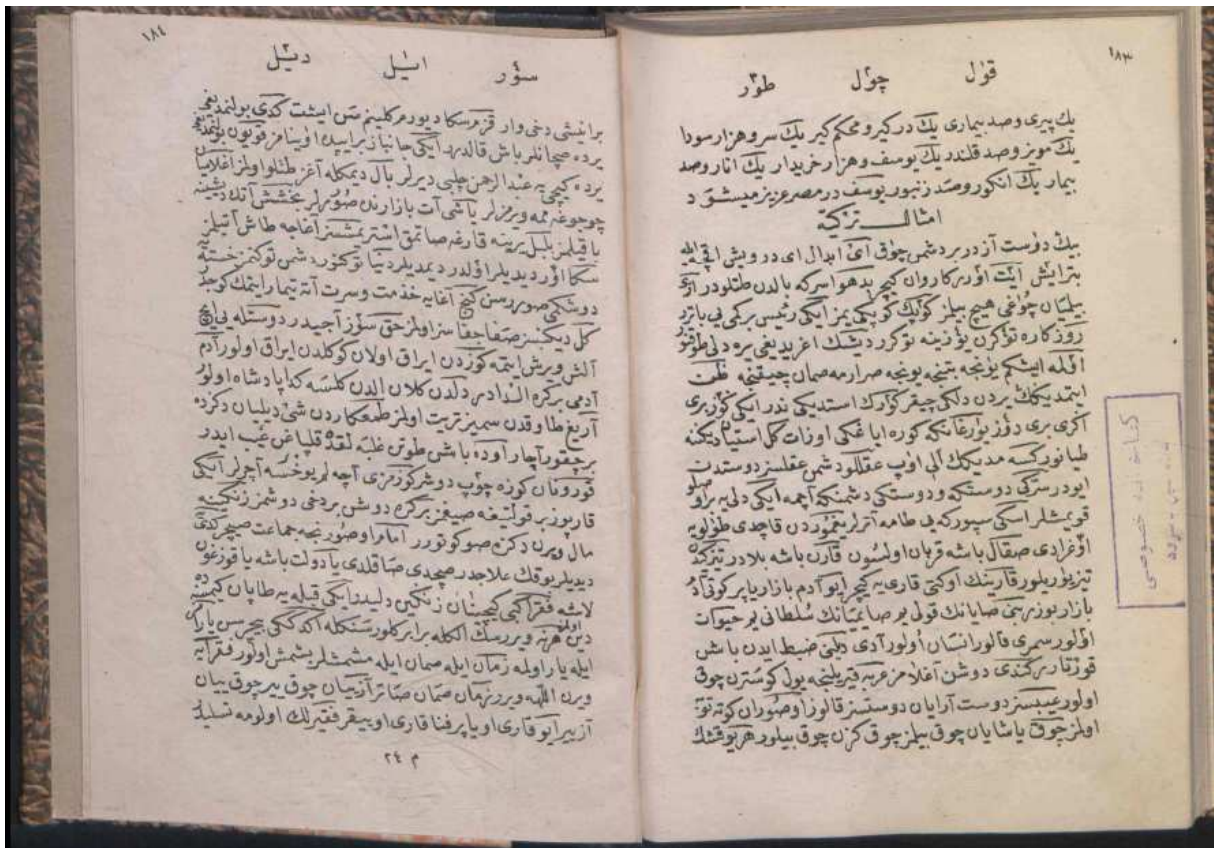 ١٨٣
قول چول طور
يك پيرى وصد بيمارى يك در كير و محكم كير يك سر و هزار سودا
يك مويز وصد قلندر يك يوسف و هزار خريدار يك انار وصد
بيمار يك انكور وصد زنبور يوسف در مصر عزيز ميشود
امثال تركيه
بيك دوست آز در بر دشمن چوق آى ابدال اى درويش اقچه الله
بتر ايش ايت اؤرر كاروان كيچر بدهوا سركه بالدن طتلودر
بيلميان چوغى هيچ بيلمز كوپك كوپكى يمز ايكى رئيس بر كمى يى باترر
روزكاره توكرن يوزينه توكرر ديشك اغريديغى يره دلى طوقنور
ايتمديكنك يردن دلكى چيقر كورك استديكى ندر ايكى كوز برى
اكرى برى دوز يورغانكه كوره اياغكى اوزات كل استيان ديكنه
طيانور كسه مديكك الى اوپ عقللو دشمن عقلسز دوستدن
ايودر سركى دوستكه و دوستكى دشمنكه آچمه ايكى دلى يه بر اوصلو
قويمشلر اسكى سپوركه يى طامه آترلر يغموردن قاچدى طولويه
اوغرادى صقال باشه قربان اولسون قارن باشه بلادر تيز كيدن
تيز يوريلور قارينك اوكنى قارى يه كيچر ايو آدم بازار ياپر كوتى آدم
بازار بوزر بنى صايانك قولى يم صايميانك سلطانى يم حيوان
اولور سمرى قالور انسان اولور آدى دلنى ضبط ايدن باشن
قورتارر كندى دوشن آغلامز عربه قيريلنجه يول كوسترن چوق
اولور عيبسز دوست آرايان دوستسز قالور اوصوران كوته تومان
اولمز چوق ياشايان چوق بيلمز چوق كزن چوق بيلور هر يوقشك
١٨٤
سوز ايل ديل
بر انيشى دخى وار قزم سكا ديورم كلينم سن ايشت كدى بولنمديغى
يرده صچانلر باش قالدرر ايكى جانباز بر ايپده اوينامز قويون بولنمديغى
يرده كيچى يه عبد الرحمن چلبى ديرلر بال ديمكله آغز طتلو اولمز آغلاميان
چوجوغه ممه ويرمزلر ياشى آت بازارنده صورلر بخشش آتك ديشينه
باقيلمز بلبل يرينه قارغه صاتمق استر يمشسز آغاجه طاش آتيلمز
دوشكمى صورر سن كنج آغايه خدمت و سرت آته تيمار ايتمك كوجدر
كل ديكنسز صفا جفاسز اولمز حق سوز آجيدر دوستله يى ايچ
آلش ويرش ايتمه كوزدن ايراق اولان كوكلدن ايراق اولور آدم
آدمى بر كره الدادر دلدن كلان الدن كلسه كدا پادشاه اولور
آريغ طاوقدن سميز تريت اولمز طمعكاردن شئ ديليان دكزده
بر چقور آچار آوده باشن طوتن غلبه لقده قلپاغن غيب ايدر
قورونان كوزه چوپ دوشر كوز مزى آچه لم يوخسه آچرلر ايكى
قارپوز بر قولتيغه صيغمز بر كره دوشن بر دخى دوشمز زنكينه
مال ويرن دكزه صو كوتورر امام اوصورنجه جماعت صيچر كدى
ديديلر بوقك علاجدر صچدى صاقلدى يا دولت باشه يا قوزغون
لاشه فقرا كمى كيچينان زنكين دليدر ايكى قبله يه طاپان كيمسه ده
دين اولمز هر نه ويررسك الكله برابر كلور سنكله اكدككى بيچرسن يارلر
ايله يار اوله زمان ايله صمان ايله مشمشلر يشمش اولور فقرايه
ويرن اللهه ويرر زمان صمان صاتر آز ييان چوق ير چوق ييان
آز ير ايو قارى او ياپر فنا قارى او ييقر فقيرلك اولومه
م ٢٤